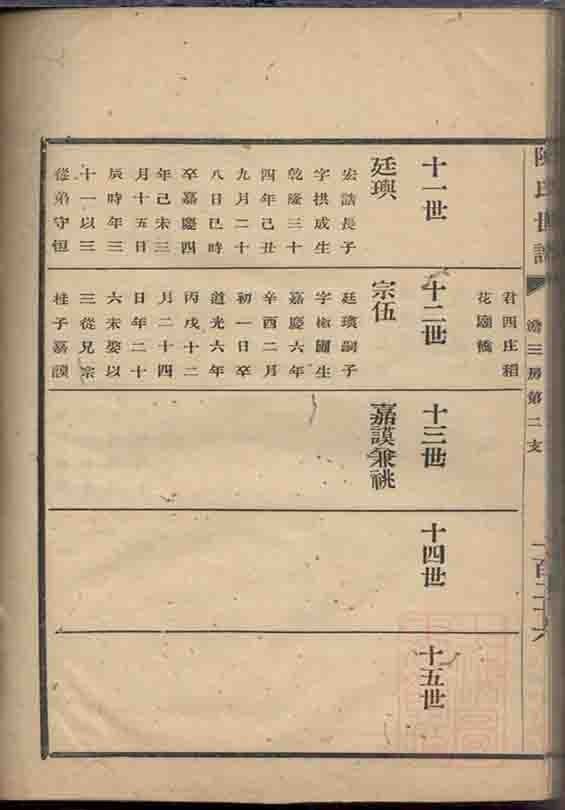 陳氏世譜
澹三房第二支
君四庄稻
花廟橋
十一世
廷璵
宏詰長子
字拱成生
乾隆三十
四年己丑
九月二十
八日巳時
卒嘉慶四
年己未三
月十五日
辰時年三
十一以三
從弟守恒
十二世
宗伍
廷璵嗣子
生
嘉慶六年
辛酉二月
初一日卒
道光六年
丙戌十二
月二十四
日年二十
六未娶以
三從兄宗
桂子嘉謨
十三世
嘉謨兼祧
十四世
十五世